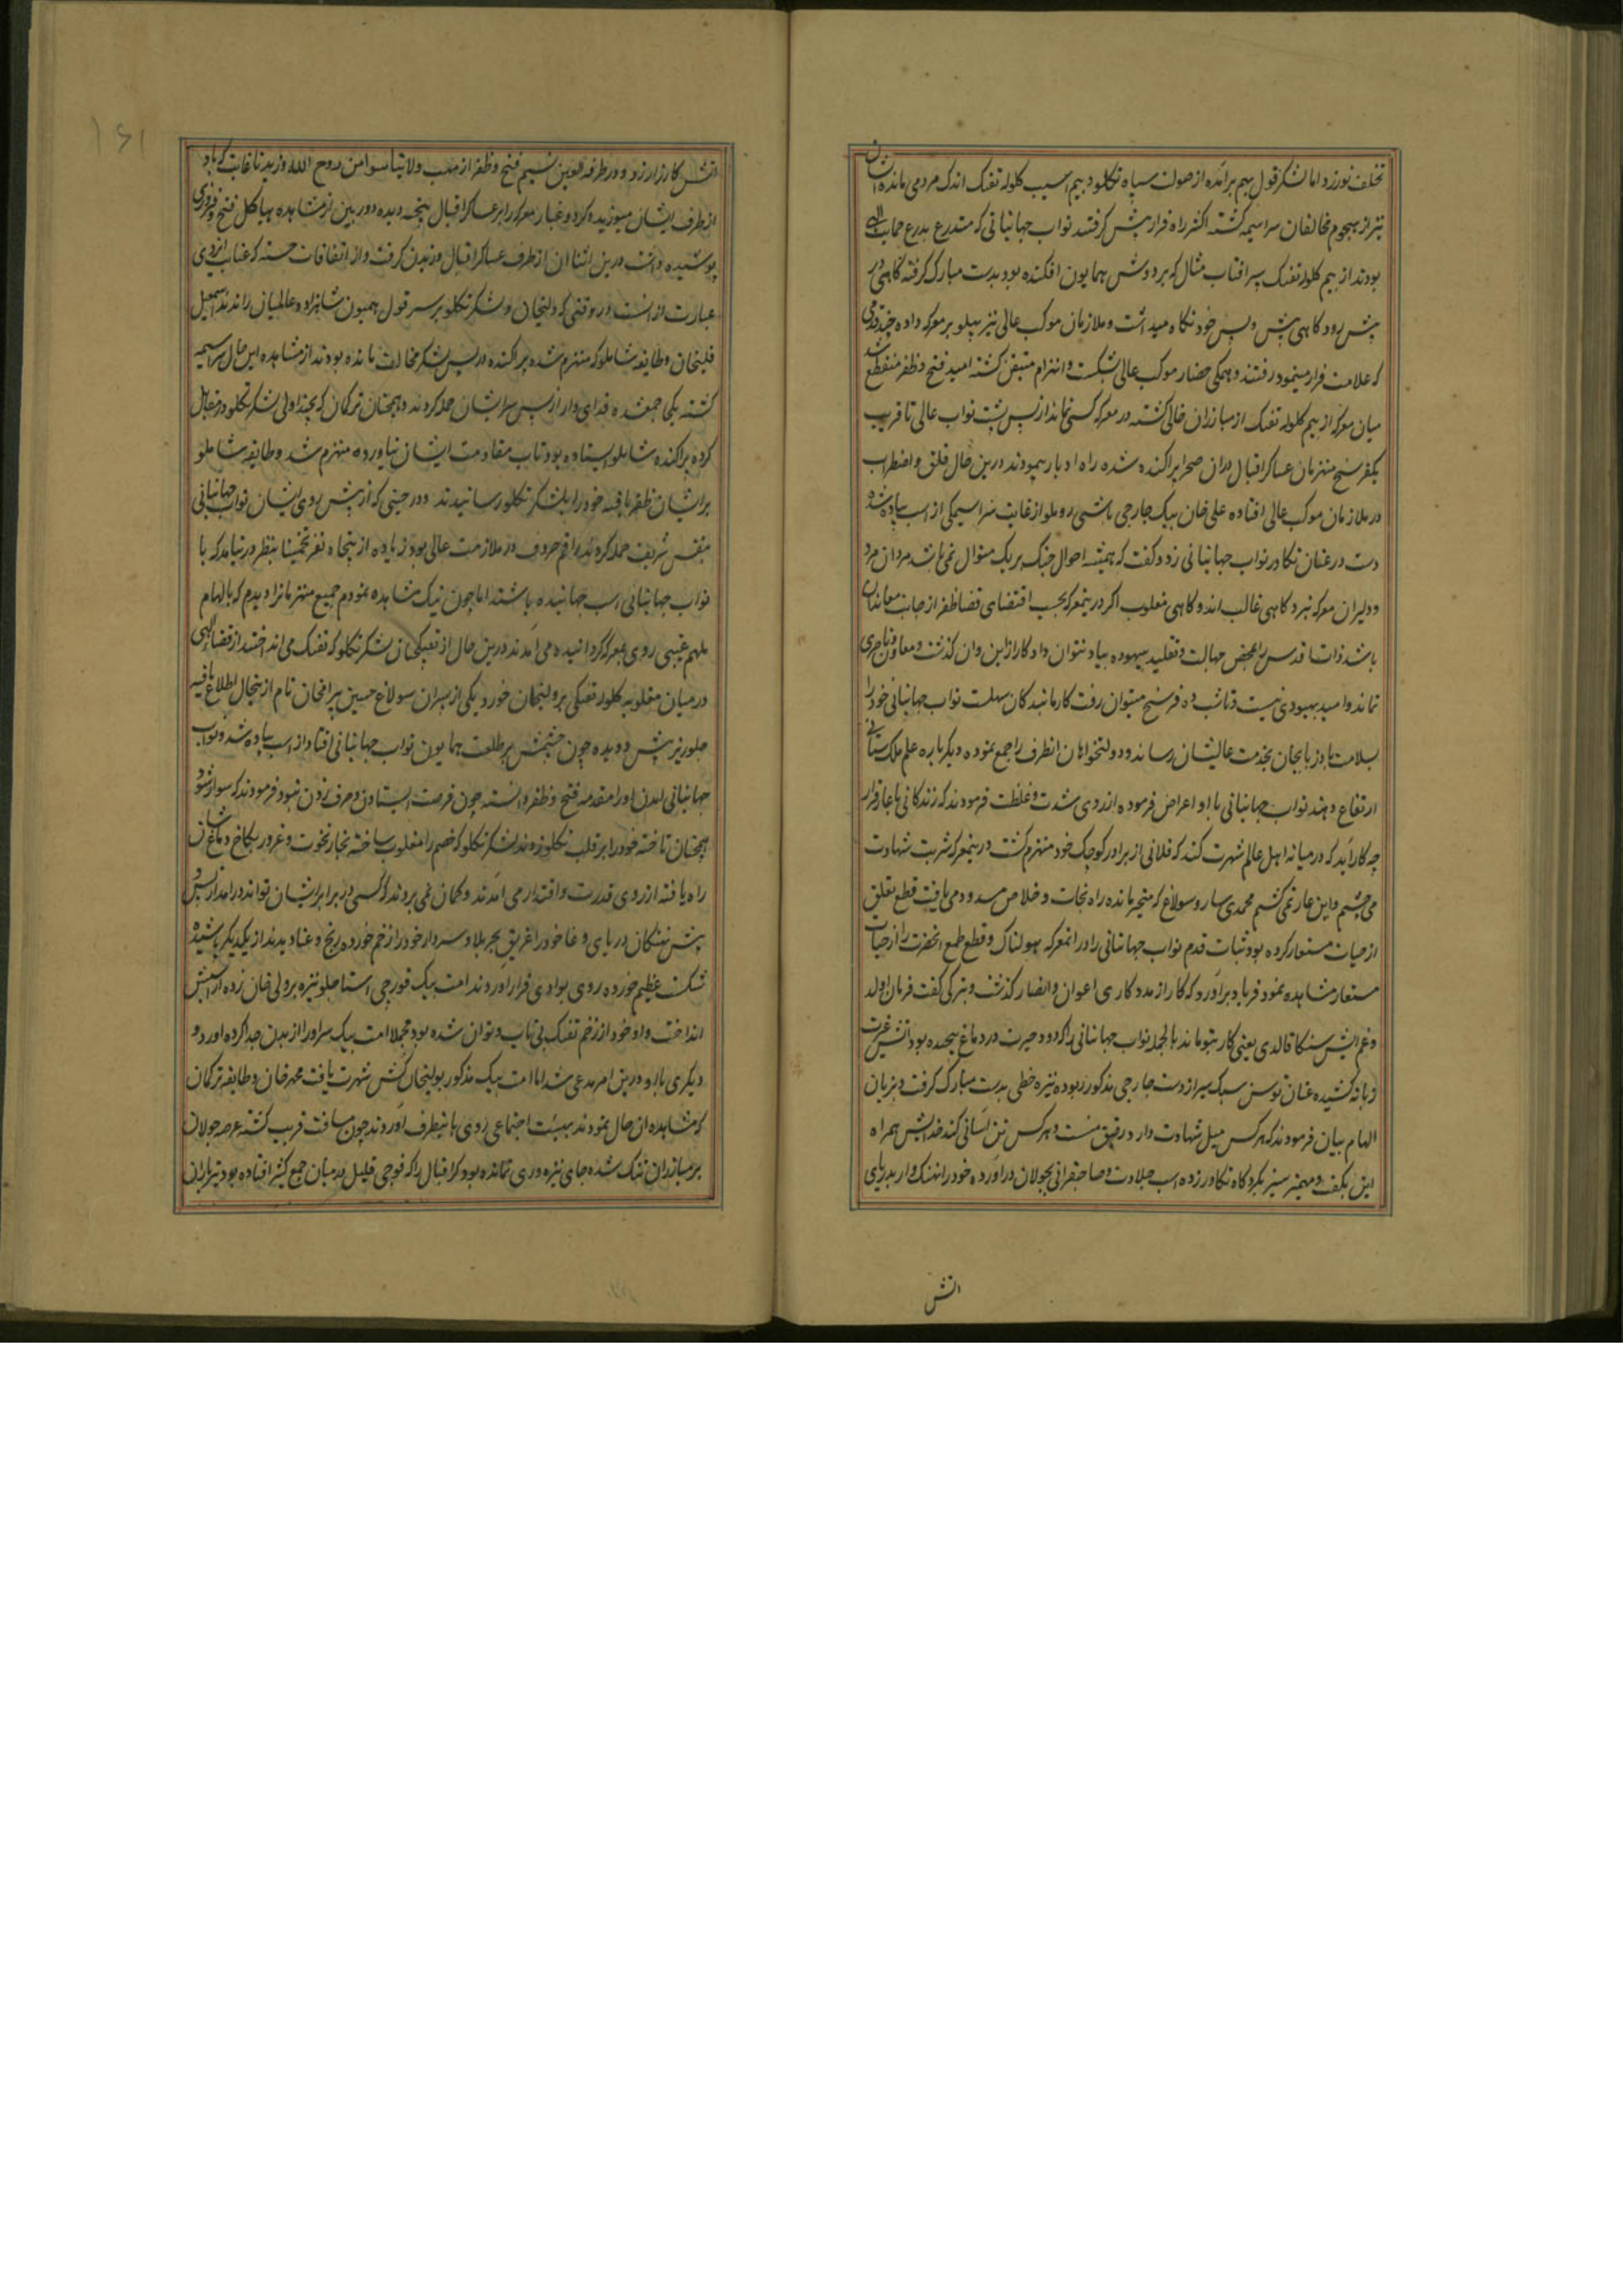 تخلف نورزد اما لشکر قول بهم برآمده از صولت سپاه تکلو و بیم آسیب کلوله تفنک اندک مردمی مانده
نیز از هجوم مخالفان سراسیمه کشته اکثر راه فرار پیش کرفتند نواب جهانبانی که متدرع بدرع حمایت الهی
بودند از بیم کلوله تفنک سپر افتاب مثال که بر دوش همایون افکنده بود بدست مبارک کرفته کاهی در
پیش رو و کاهی پیش و پس خود نکاه میداشت و ملازمان موکب عالی نیز پهلو بر معرکه داده چند قدمی
که علامت فرار مینمود رفتند و همکی حضار موکب عالی بشکست و انهزام متیقن کشته امید فتح و ظفر منقطع شد
میان معرکه از بیم کلوله تفنک از مبارزان خالی کشته در معرکه کسی نماند از پس پشت نواب عالی تا قریب
یکفرسخ منهزمان عساکر اقبال بدان صحرا پراکنده شده راه ادبار پیمودند درین حال قلق و اضطراب
در ملازمان موکب عالی افتاده علی خان بیک جارجی باشی روملو از غایت سراسیمکی از اسب پیاده شده
دست در عنان تکاور نواب جهانبانی زد و کفت که همیشه احوال جنک بر یک منوال نمی باشد مردان مرد
و دلیران معرکه نبرد کاهی غالب اند و کاهی مغلوب اکر درینمعرکه بحسب اقتضای قضا ظفر از جانب معاندان
باشد ذات اقدس را بمحض جهالت و تقلید بیهوده بباد نتوان داد کار از این و آن کذشت و معاون و ناصری
نمانده امید بهبودی نیست و تا شب ده فرسخ میتوان رفت کار ما بندکان سهلست نواب جهانبانی خود را
بسلامت باذربایجان بخدمت عالیشان رساند و دولتخواهان انطرف را جمع نموده دیکر باره علم ملک ستانی
ارتفاع دهند نواب جهانبانی با او اعراض فرموده از روی شدت و غلظت فرمودند که زندکانی با عار فرار
چه کار آید که در میانه اهل عالم شهرت کند که فلانی از برادر کوچک خود منهزم کشت درینمعرکه شربت شهادت
می چشیم و این عار نمی کشیم محمدی سارو سولاغ که متحیر مانده راه نجات و خلاص مسدود می یافت قطع تعلق
از حیات مستعار کرده بود ثبات قدم نواب جهانبانی را در انمعرکه هولناک و قطع طمع انحضرت را از حیات
مستعار مشاهده نمود فریاد برآورد که کار از مددکاری اعوان و انصار کذشت و بترکی کفت قربان اولد
وغم ایش سنکا قالدی یعنی کار بتو ماند بالجمله نواب جهانبانی را که دود حیرت در دماغ پیچیده بود آتش غیرت
زبانه کشیده عنان توسن سبک سیر از دست جارجی مذکور ربوده نیزه خطی بدست مبارک کرفت و بزبان
الهام بیان فرمودند که هرکس میل شهادت دارد رفیق منست و هرکس تن آسانی کند خدایش همراه
این بکفت و مهمیز ستیز بر کرده کاه تکاور زده اسب جلادت و صاحبقرانی بجولان درآورده خود را نهنک وار بدریای
اتش
اتش کارزار زد و در طرفه العین نسیم فتح و ظفر از مهب ولا تیأسوا من روح الله وزید تا غایت که باد
از طرف ایشان میوزید و کرد و غبار معرکه را بر عساکر اقبال بیخته دیده دوربین از مشاهده هیاکل فتح و فیروزی
پوشیده داشت درین اثنا ان از طرف عساکر اقبال وزیدن کرفت و از اتفاقات حسنه که عنایت ایزدی
عبارت از انست در وقتی که ولیخان و لشکر تکلو بر سر قول همیون شاهزاده عالمیان راندند اسمعیل
قلیخان و طایفه شاملو که منهزم شده پراکنده در پس لشکر مخالف مانده بودند از مشاهده این حال سراسیمه
کشته یکی جمع شده فدای وار از پس سر ایشان حمله کردند و همچنان ترکمان که بچنداولی لشکر تکلو در مقابل
کرده پراکنده شاملو ایستاده بود تاب مقاومت ایشان نیاورده منهزم شد و طایفه شاملو
بر ایشان ظفر یافته خود را بلشکر تکلو رسانیدند و در حینی که از پیش روی ایشان نواب جهانبانی
بنفس شریف حمله کردند راقم حروف در ملازمت عالی بود زیاده از پنجاه نفر تخمینا بنظر در نیامد که با
نواب جهانبانی اسب جهانیده باشند اما چون نیک مشاهده نمودم جمیع منهزمانرا دیدم که بالهام
ملهم غیبی روی بمعرکه کردانیده می آمدند درین حال از تفنکچیان لشکر تکلو که تفنک می انداختند از قضاء الهی
در میان مغلوبه کلوله تفنکی بر ولیخان خورد یکی از پسران سولاغ حسین پیرامخان نام از ینحال اطلاع یافته
جلوریز پیش دویده چون چشمش بر طلعت همایون نواب جهانبانی افتاد از اسب پیاده شد و نواب
جهانبانی آمدن او را مقدمه فتح و ظفر دانسته چون فرصت ایستادن و حرف زدن نبود فرمودند که سوار شو و
همچنان تاخته خود را بر قلب تکلو زدند لشکر تکلو که خصم را مغلوب ساخته بخار نخوت و غرور بکاخ دماغشان
راه یافته از روی قدرت و اقتدار می آمدند و کمان نمی بردند که کسی در برابر ایشان تواند درامد از پس و
پیش نهنکان دریای وغا خود را غریق بحر بلا و سردار خود را زخم خورده رنج و عنا دیدند از یکدیکر پاشیده
شکست عظیم خورده روی بوادی فرار آوردند امت بیک قورچی استاجلو نیزه بر ولی خان زده از اسبش
انداخت و او خود از زخم تفنک بی تاب و توان شده بود مجملا امت بیک سر او را از بدن جدا کرده اورد و
دیکری با او درین امر مدعی شد اما امت بیک مذکور بولیخان کش شهرت یافت محمد خان و طایفه ترکمان
که مشاهده ان حال نمودند بهیئت اجتماعی روی بانیطرف آوردند چون مسافت قریب کشته عرصه جولان
بر مبارزان تنک شده جای نیزه وری نمانده بود کراقبال را که فوجی قلیل در میان جمع کثیر افتاده بود تیرباران